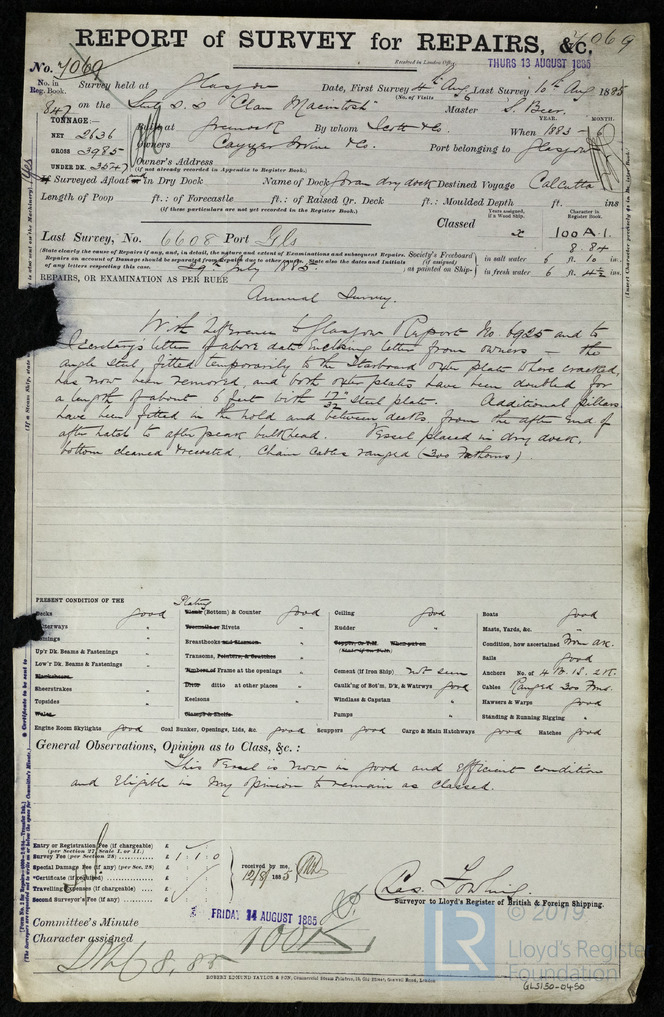 7069
REPORT of SURVEY for REPAIRS, &c.
Received in London Office
THURS 13 AUGUST 1885
No. 7069
No. in Reg. Book. Survey held at Glasgow Date, First Survey 4th Aug Last Survey 10th Aug 1885
(No. of Visits 6
847 on the S.S. "Clan Macintosh" Master S. Beer
TONNAGE: YEAR. MONTH.
NET 2636 Built at Greenock By whom Scott & Co. When 1883
GROSS 3985 Owners Cayzer Irvine & Co. Port belonging to Glasgow
UNDER DK. 3547 Owner's Address
(if not already recorded in Appendix to Register Book.)
If Surveyed Afloat or in Dry Dock Name of Dock Govan dry dock Destined Voyage Calcutta
Length of Poop ft.: of Forecastle ft.: of Raised Qr. Deck ft.: Moulded Depth ft. ins
(if these particulars are not yet recorded in the Register Book.)
Years assigned, if a Wood Ship. Character in Register Book.
Classed 100 A.1.
8.84
Last Survey, No. 6608 Port Gls
29th July 1885
(State clearly the cause of Repairs if any, and, in detail, the nature and extent of Examinations and subsequent Repairs.
Repairs on account of Damage should be separated from Repairs due to other causes. State also the dates and Initials
of any letters respecting this case.
Society's Freeboard (if assigned) as painted on Ship-
in salt water 6 ft. 10 in.
in fresh water 6 ft. 4½ ins
REPAIRS, OR EXAMINATION AS PER RULE
Annual Survey.
With reference to Glasgow Report No. 6925 and to
Secretary's letter of above date enclosing letter from owners – the
angle steel, fitted temporarily to the Starboard plate where cracked,
has now been removed, and both plates have been doubled for
a length of about 6 feet with 17/32 steel plate. Additional pillars
have been fitted in the hold and between decks, from the after end of
after hatch to after peak bulkhead. Vessel placed in dry dock,
bottom cleaned & recoated. Chain cables ranged (300 Fathoms)
PRESENT CONDITION OF THE
Decks good
Waterways "
Comings "
Up'r Dk. Beams & Fastenings "
Low'r Dk. Beams & Fastenings "
Sheerstrakes "
Topsides "
Wales
Plating (Bottom) & Counter good
Treenails or Rivets "
Breasthooks and Stemson "
Transoms, Pointers, & Crutches "
Timbers of Frame at the openings "
Ditto ditto at other places "
Keelsons "
Clamps & Shelfs
Ceiling good
Rudder "
Cement (if Iron Ship) not seen
Caulk'ng of Bot'm, D'k, & Watrwys good
Windlass & Capstan "
Pumps "
Boats good
Masts, Yards, &c. "
Condition, how ascertained From dk.
Sails good
Anchors No. of 4 B. 1 S. 2 K.
Cables Ranged 300 Fms.
Hawsers & Warps good
Standing & Running Rigging "
Engine Room Skylights good Coal Bunker, Openings, Lids, &c. good Scuppers good Cargo & Main Hatchways good Hatches good
General Observations, Opinion as to Class, &c.:
This Vessel is now in good and efficient condition
and eligible in my opinion to remain as classed.
Entry or Registration Fee (if chargeable) £
(per Section 27, Scale I. or II.)
Survey Fee (per Section 28) £ 1 : 1 : 0
Special Damage Fee (if any) (per Sec. 28) £
*Certificate (if required) £
Travelling Expenses (if chargeable) £
Second Surveyor's Fee (if any) £
received by me,
12/8/1885
Surveyor to Lloyd's Register of British & Foreign Shipping.
Committee's Minute FRIDAY 14 AUGUST 1885
Character assigned 100 A 1
8.85
ROBERT EDMUND TAYLOR & SON, Commercial Steam Printers, 19, Old Street, Goswell Road, London
LR © 2019
Lloyd's Register
Foundation
GLS150-0450